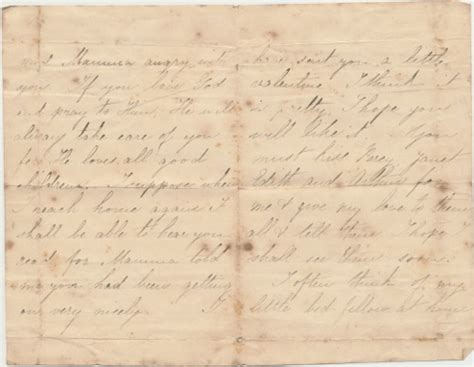 and Mamma angry with
you. If you love God
and pray to Him, He will
always take care of you
for He loves all good
children. I suppose when
I reach home again I
shall be able to hear you
read for Mamma told
me you had been getting
on very nicely. I
have sent you a little
valentine I think it
is pretty. I hope you
will like it. You
must kiss Percy Janet
Edith and Arthur for
me & give my love to them
all & tell them I hope I
shall see them soon.
I often think of my
little bed fellow at home